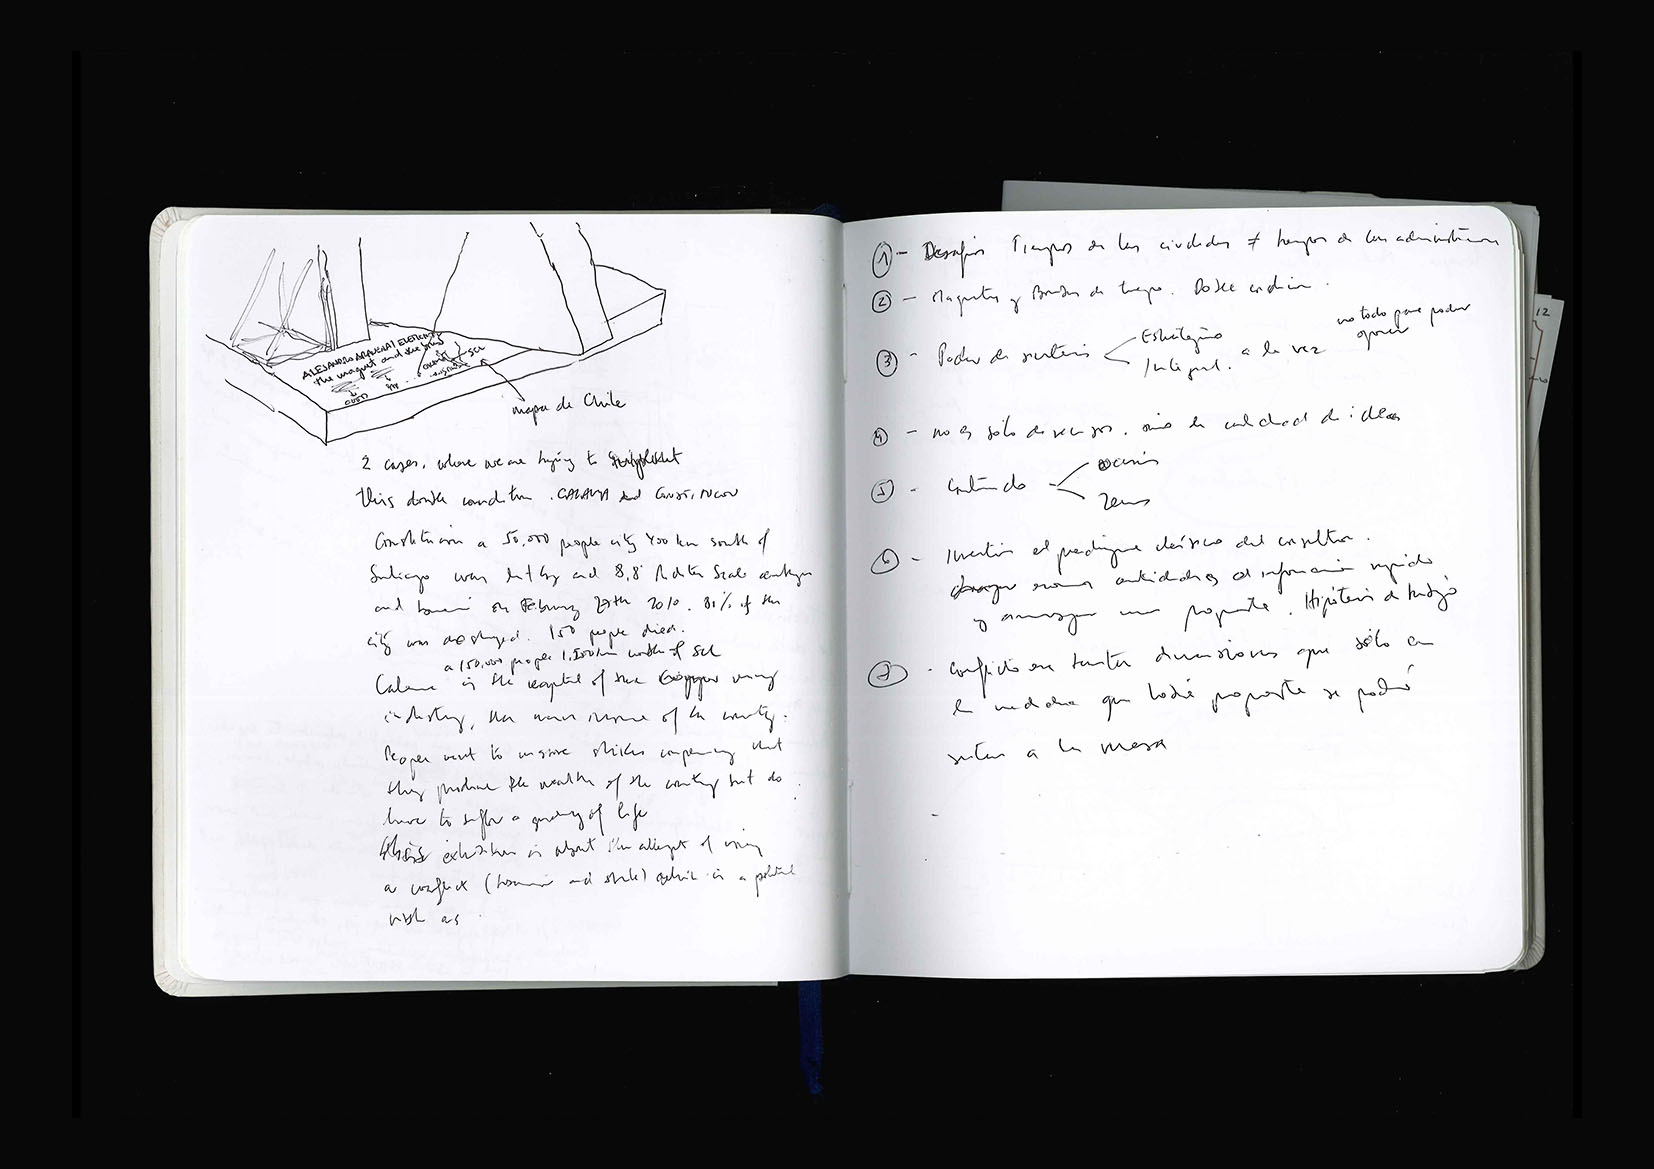 ALEJANDRO ARAVENA / ELEMENTAL
the magnet and the
SCL
mapa de Chile
2 cases, where we are trying to
this double condition. CALAMA and CONSTITUCION
Constitucion a 50,000 people city 400 km south of
Santiago was hit by and 8,8 Richter Scale earthquake
and tsunami on February 27th 2010. 80% of the
city was destroyed. 150 people died.
a 150,000 people 1,500 km north of SCL
Calama is the capital of the copper mining
industry, the main income of the country.
People went to massive strikes complaining that
they produce the wealth of the country but do
have to suffer a quality of life
this exhibition is about the attempt of using
a conflict (tsunami and strike) which is a political
wish as
1 - Desafío Tiempos de las ciudades ≠ tiempos de las administraciones
2 - Maquetas y Bombas de tiempo. Doble condición.
3 - Poder de síntesis
Estratégico
Integral. a la vez
no todo para poder
operar
4 - no es sólo de recursos. sino de calidad de ideas
5 - Contenido
6 - Invertir el paradigma clásico del consultor.
enormes cantidades de información rápido
y arriesgar una propuesta. Hipótesis de trabajo
7 - Conflicto en tantas dimensiones que sólo en
la medida que había propuesta se podrá
sentar a la mesa
12